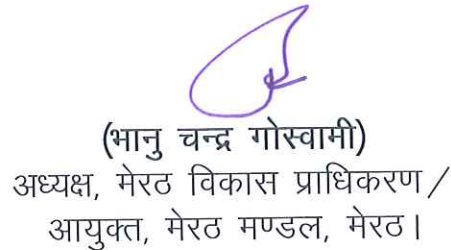 (भानु चन्द्र गोस्वामी)
अध्यक्ष, मेरठ विकास प्राधिकरण/
आयुक्त, मेरठ मण्डल, मेरठ।